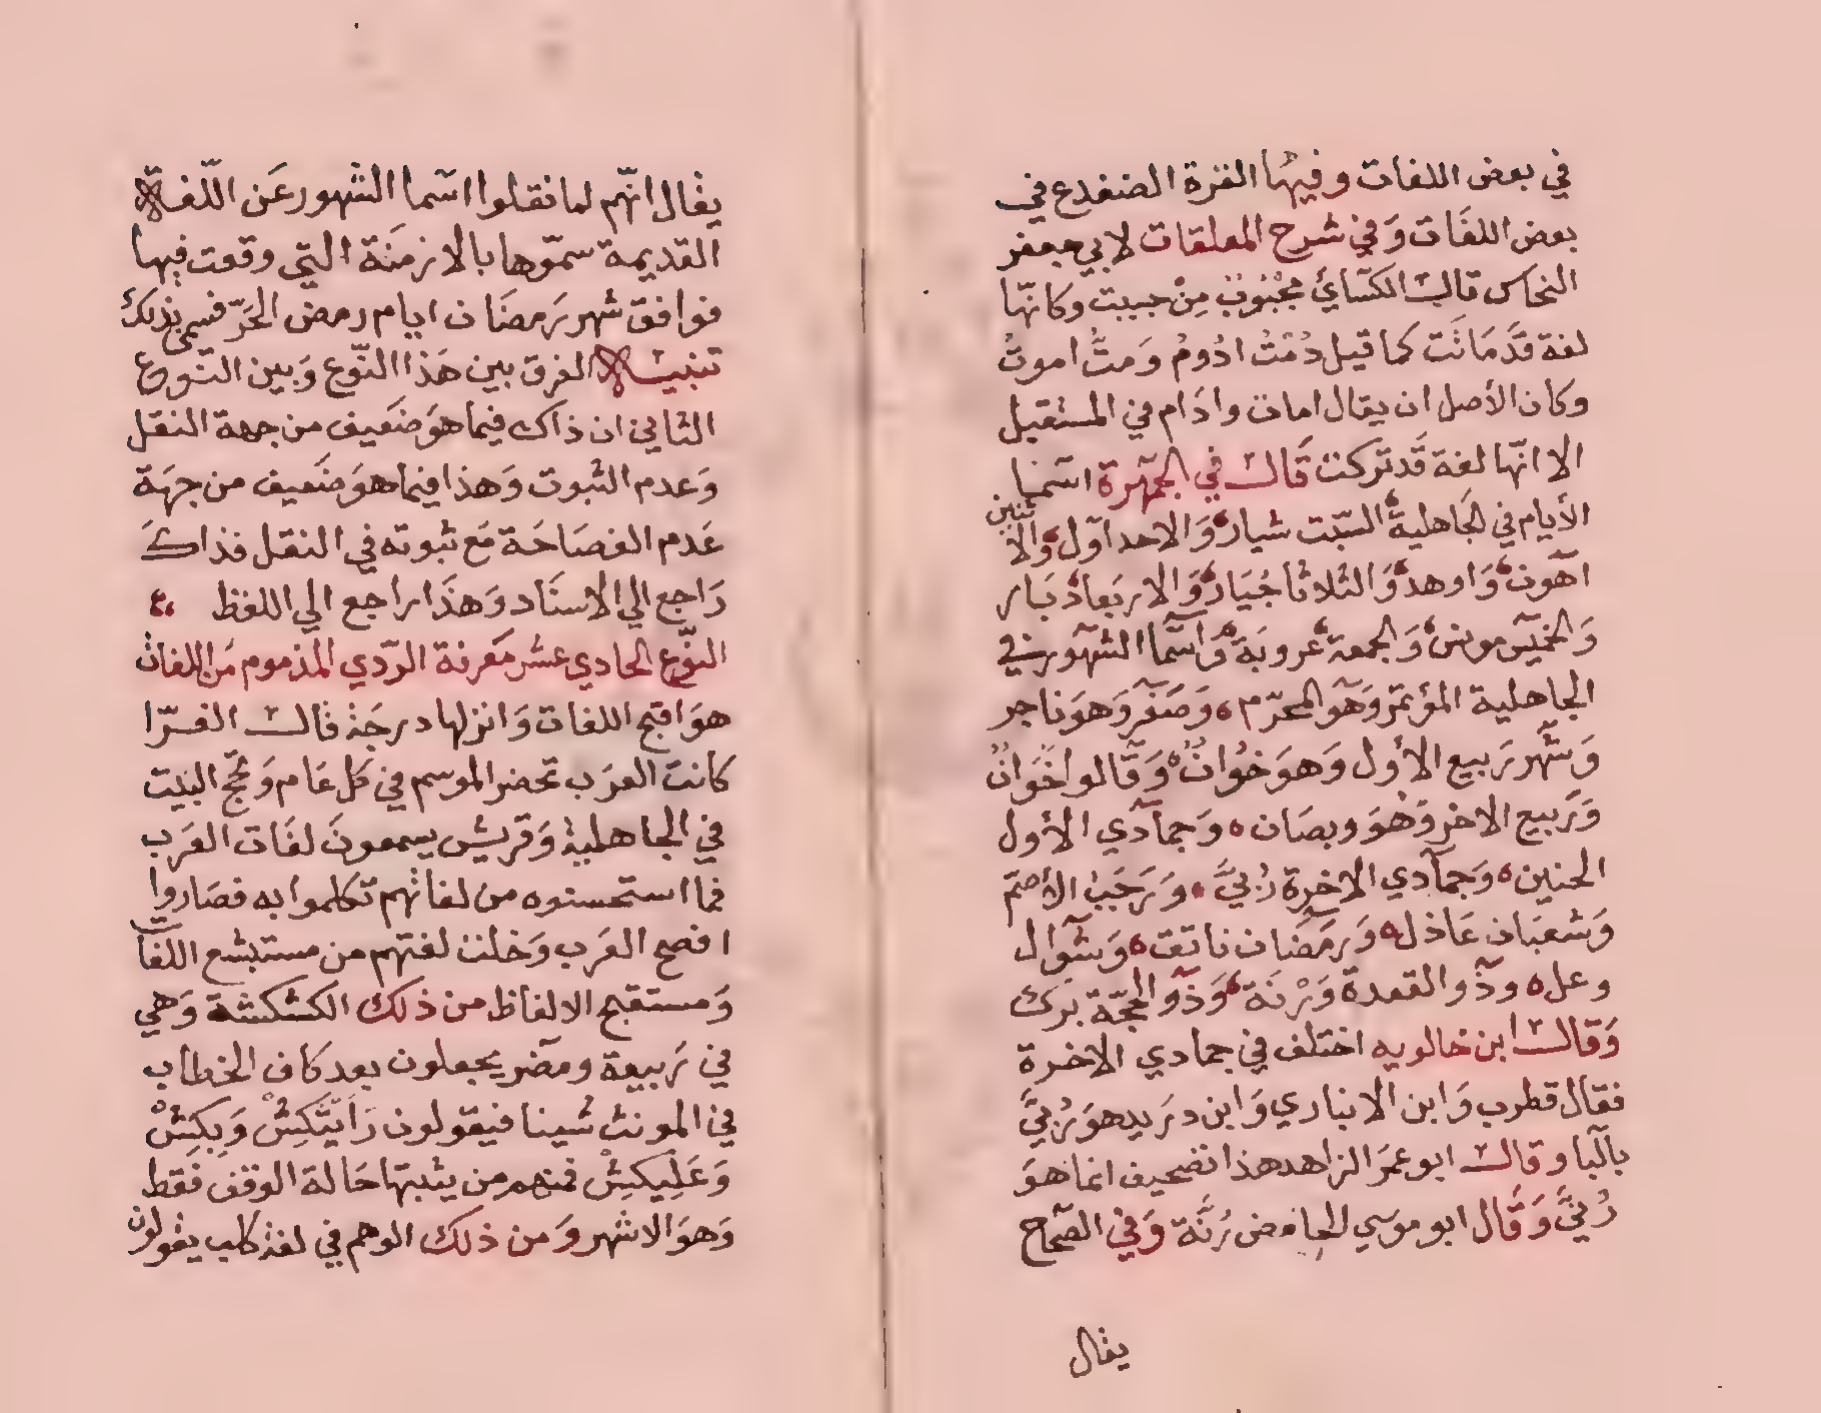 في بعض اللغات وفيها الغزة الضفدع في
بعض اللغَات وَفي شرح المعلقات لابي جعفر
النحاس قال الكسَائي مَحْبُوبٌ مِنْ حببت وكانّها
لغة قَد مَاتَت كما قيل دُمْتُ ادُومُ وَمتُّ اموتُ
وكان الأصل ان يقال امات وادَام في المستقبل
الا انّها لغة قَد تركت قَال في الجمهرة اسما
الأيام في الجَاهلية السّبت شيار وَالاحد اوّل وَالاثنين
اهون وَاوهد وَالثلاثا جُبَار وَالاربَعا دبَار
وَالخميس مونس وَالجمعة عروبَة وَاسما الشهور في
الجاهلية المؤتمر وَهوَ المحرّم وَصَفر وَهوَ ناجر
وَشهر رَبيع الأول وَهوَ خوُانٌ وَقَالوا خَوَانٌ
وَرَبيع الاخر وَهوَ وبصَان وَجمادي الأول
الحنين وَجمادي الاخرة رُبيَّ وَرَجَبُ الأصمّ
وَشعبَان عَاذل وَرمَضَان ناتق وَشوّال
وعل وذو القعدة وَرْنَة وَذو الحجّة برك
وَقال ابن خالويه اختلف في جمادي الاخرة
فقال قطرب وَابن الانباري وَابن دريد هوَ رُبيَّ
بالبا وقال ابو عمَر الزاهد هذا تصحيف انما هوَ
رُنيَّ وَقَال ابو موسي الحامض رُنَّة وَفي الصّحاح
يقال
يقال انّهم لما نقلوا اسما الشهور عَن اللّغة
القديمة سمّوها بالازمنَة التي وقعت فيها
فوافق شهر رَمضَان ايام رمض الحَرّ فسمي بذلك
تنبيه الفرق بين هَذا النّوع وَبين النّوع
الثاني ان ذاك فيما هوَ ضَعيف من جهة النقل
وَعدم الثبوت وَهذا فيما هوَ ضَعيف من جهَة
عَدم الفصَاحَة مَع ثبوته في النقل فذاكَ
رَاجع الي الاسنَاد وَهذَا راجع الي اللفظ
النّوع الحادي عشر مَعرفة الرّدي المذموم مَن اللغات
هوَ اقبح اللغات وَانزلها درجَة قال الفرّا
كانت العرَب تحضر الموسم في كل عَام وَتحجّ البيَت
في الجاهلية وَقريش يسمعونَ لغَات العَرَب
فما استحسنوه من لغاتهم تكلموا به فصَاروا
افصح العَرَب وَخلت لغتهم من مستبشع اللغات
وَمستقبح الالفاظ من ذلك الكشكشة وَهي
في رَبيعة ومضر يجعلون بعد كاف الخطاب
في المونث شينا فيقولون رَايَتَكِشْ وَبِكِشْ
وَعَلِيكِشْ فمنهم من يثبتها حَالة الوقف فقط
وَهوَ الاشهر وَمن ذلك الوهم في لغة كلب يقولون